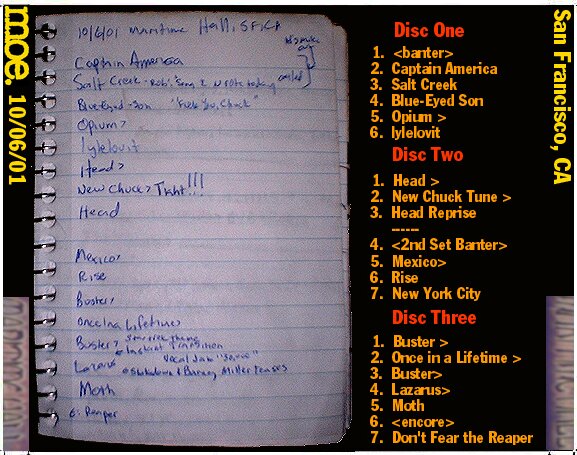 moe. 10/06/01
10/6/01 Maritime Hall, SF, CA
Captain America
Salt Creek - Rob: "song I wrote today"
Blue-Eyed Son "Fuck You, Chuck"
Opium >
lylelovit
Head >
New Chuck > Tight!!!
Head
Mexico >
Rise
Buster >
Once In a Lifetime >
Buster >
Lazarus
Moth
E: Reaper
Disc One
1. <banter>
2. Captain America
3. Salt Creek
4. Blue-Eyed Son
5. Opium >
6. lylelovit
Disc Two
1. Head >
2. New Chuck Tune >
3. Head Reprise
------
4. <2nd Set Banter>
5. Mexico>
6. Rise
7. New York City
Disc Three
1. Buster >
2. Once in a Lifetime >
3. Buster>
4. Lazarus>
5. Moth
6. <encore>
7. Don't Fear the Reaper
San Francisco, CA